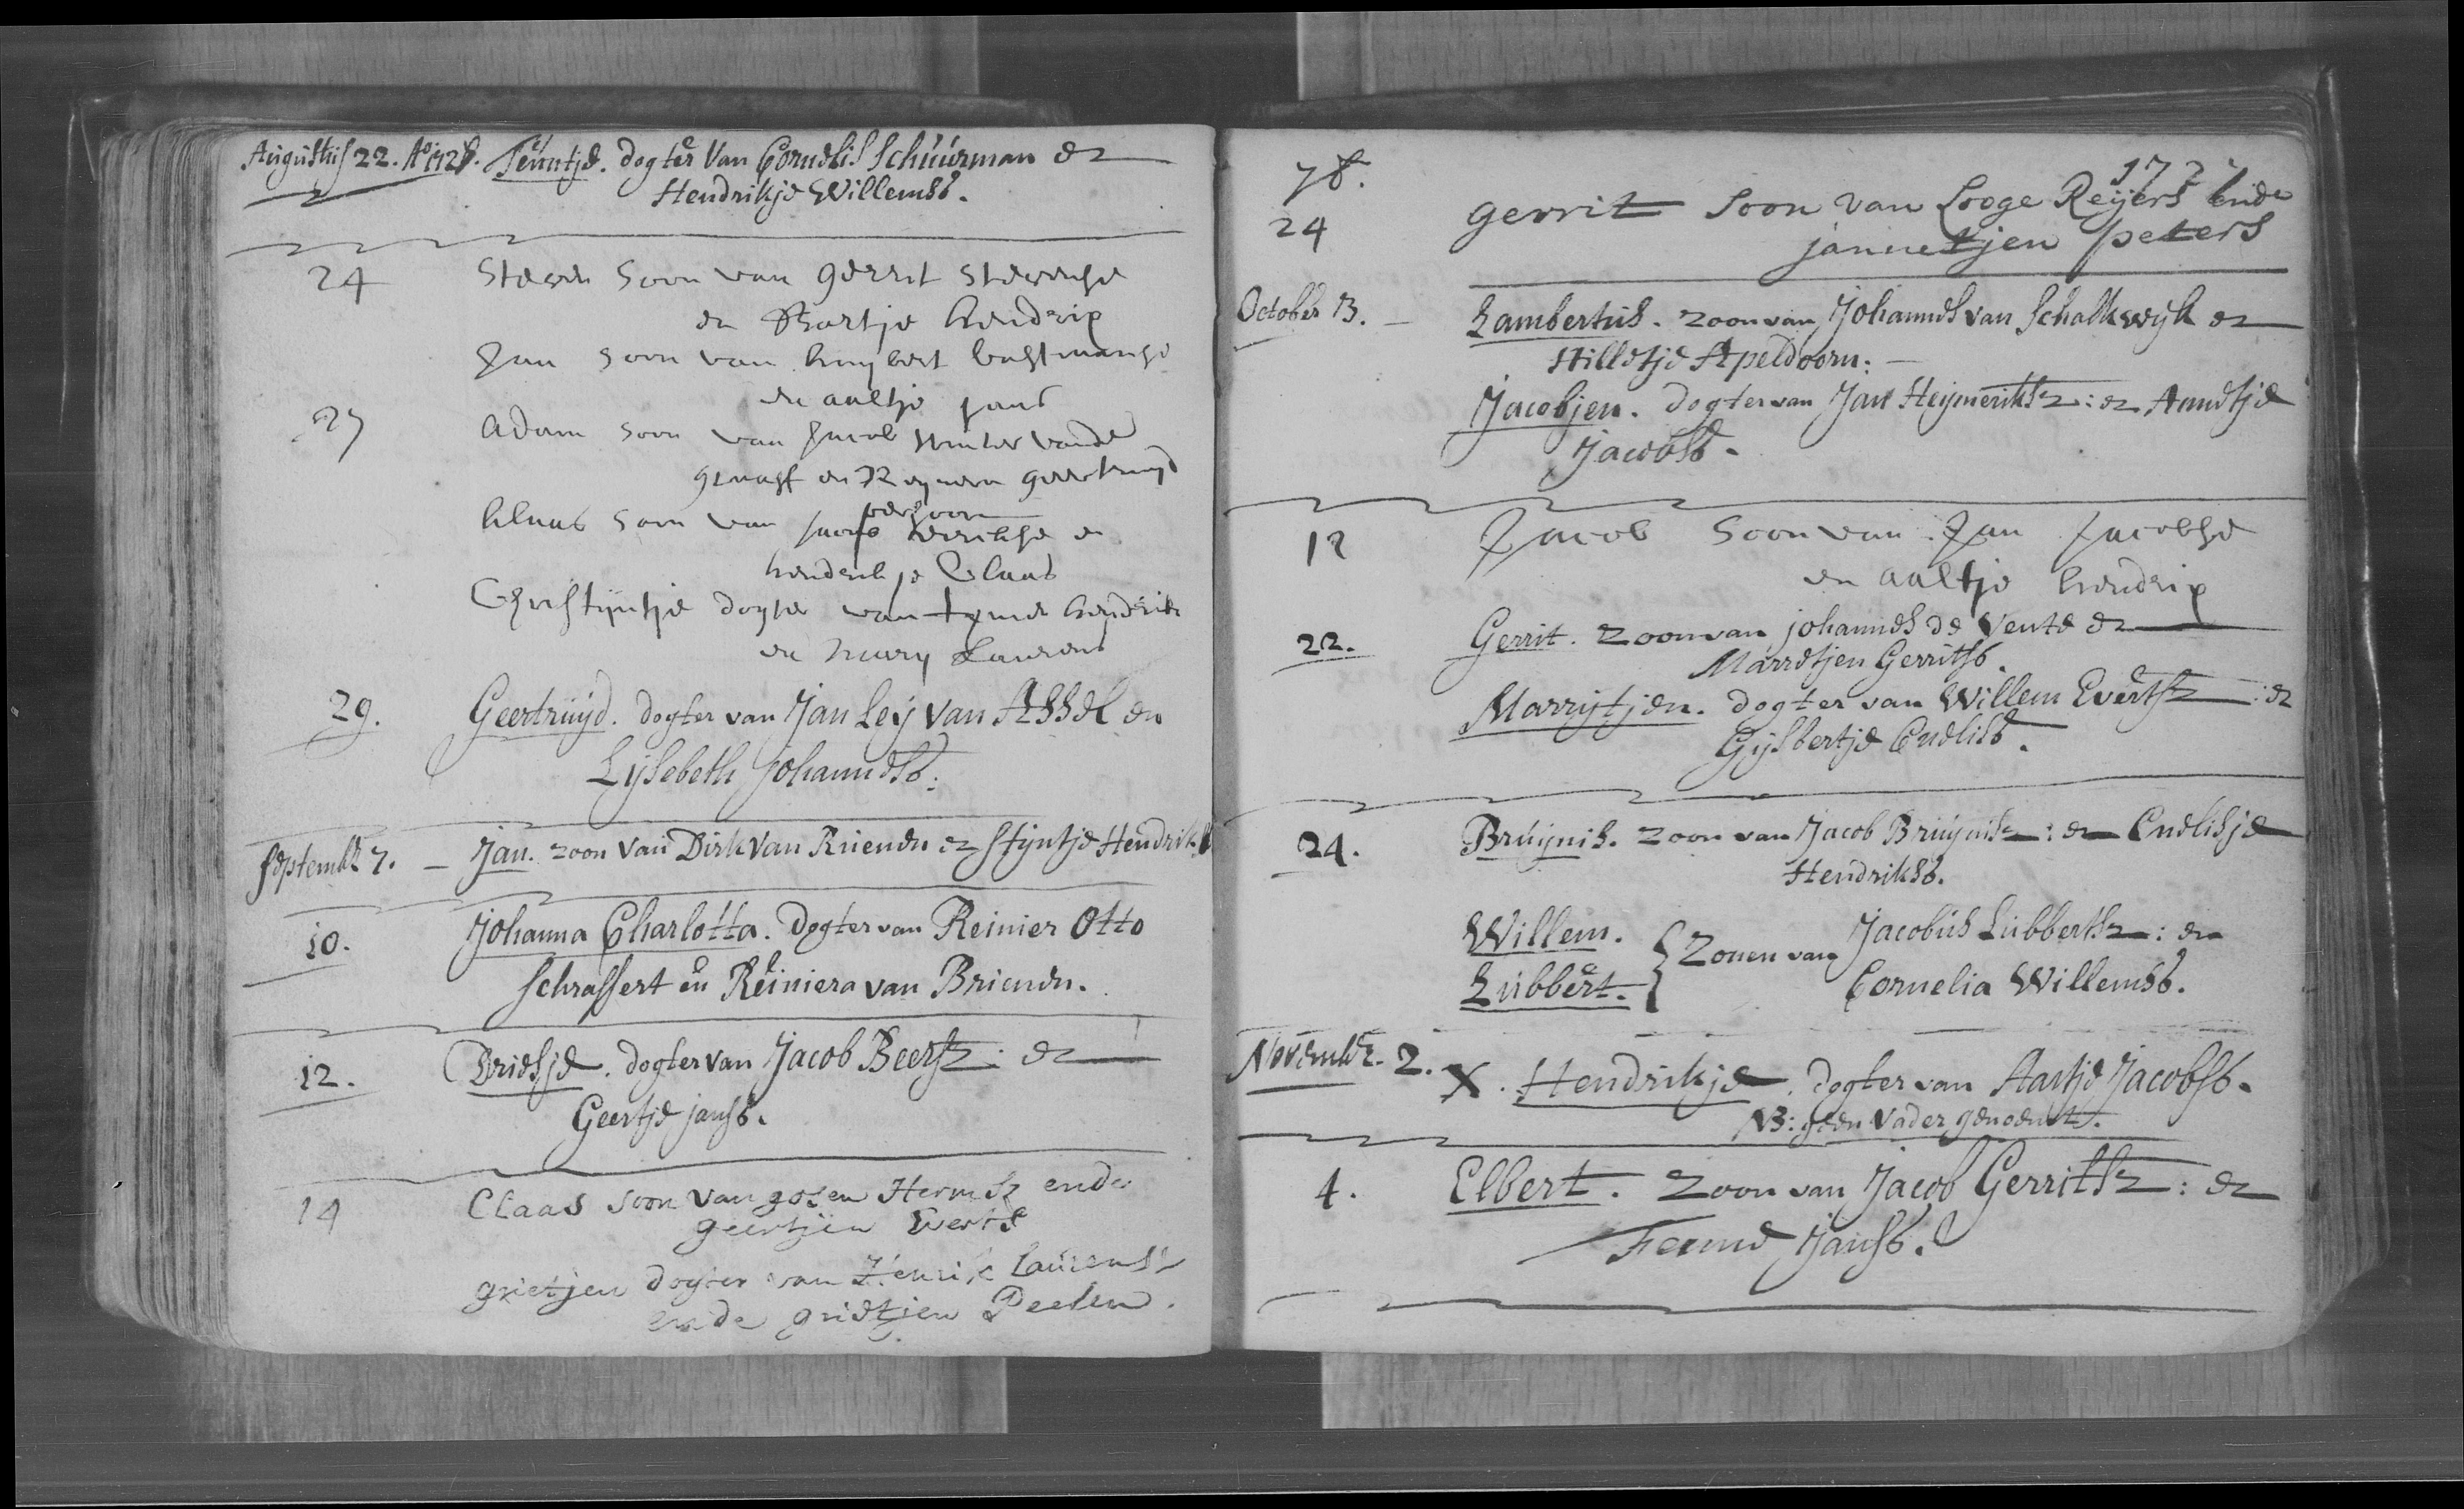 Augustus 22. Ao 1728. Teuntje. dogter Van Cornelis Schuurman en
Hendrikje Willemsd.
24 Steven soon van gerrit Stevense
en Hendrix
Jan soon van huybert
en aaltje Jans
27 Adam soon van Jacob Winter vande
en geertruyd
Klaas soon van Jacob
hendrikje Claas
Christijntje dogter van hendrik
en Laurens
29. Geertruijd. dogter van Jan Leij van Assel en
Lijsebeth Johannesd.
Septembr 7. Jan. zoon van Dirk Van Rienen en Stijntje Hendriks
10. Johanna Charlotta. dogter van Reinier Otto
Schrassert en Reiniera van Brienen.
12. Driesje. dogter van Jacob Beertz: en
Geertje Jansd.
14 Claas soon van gosen Hermsz ende
geertjen Everts
grietjen dogter van Henrik Laurensz
ende grietjen Peelen.
78. 172
24 gerrit soon van Looge Reijers ende
jannetjen peters
October 13. Lambertus. zoon van Johannes van Schalkwijk en
Hilletje Apeldoorn.
Jacobjen. dogter van Jan Heijmeriksz: en Annetje
Jacobsd.
12 Jacob soon van Jan Jacobse
en aaltje hendrix
22. Gerrit. zoon van johannes de Vente en
Marretjen Gerritsd.
Marrijtjen. dogter van Willem Evertsz: en
Gijsbertje Cnelisd.
24. Bruijnis. zoon van Jacob Bruijnisz: en Cnelisje
Hendriksd.
Willem.
Lubbert. } Zonen van Jacobus Lubbertsz: en
Cornelia Willemsd.
Novembr. 2. X. Hendrikje. dogter van Aartje Jacobsd.
NB: geen Vader genoemt.
4. Elbert. zoon van Jacob Gerritsz: en
Femme Jansd.